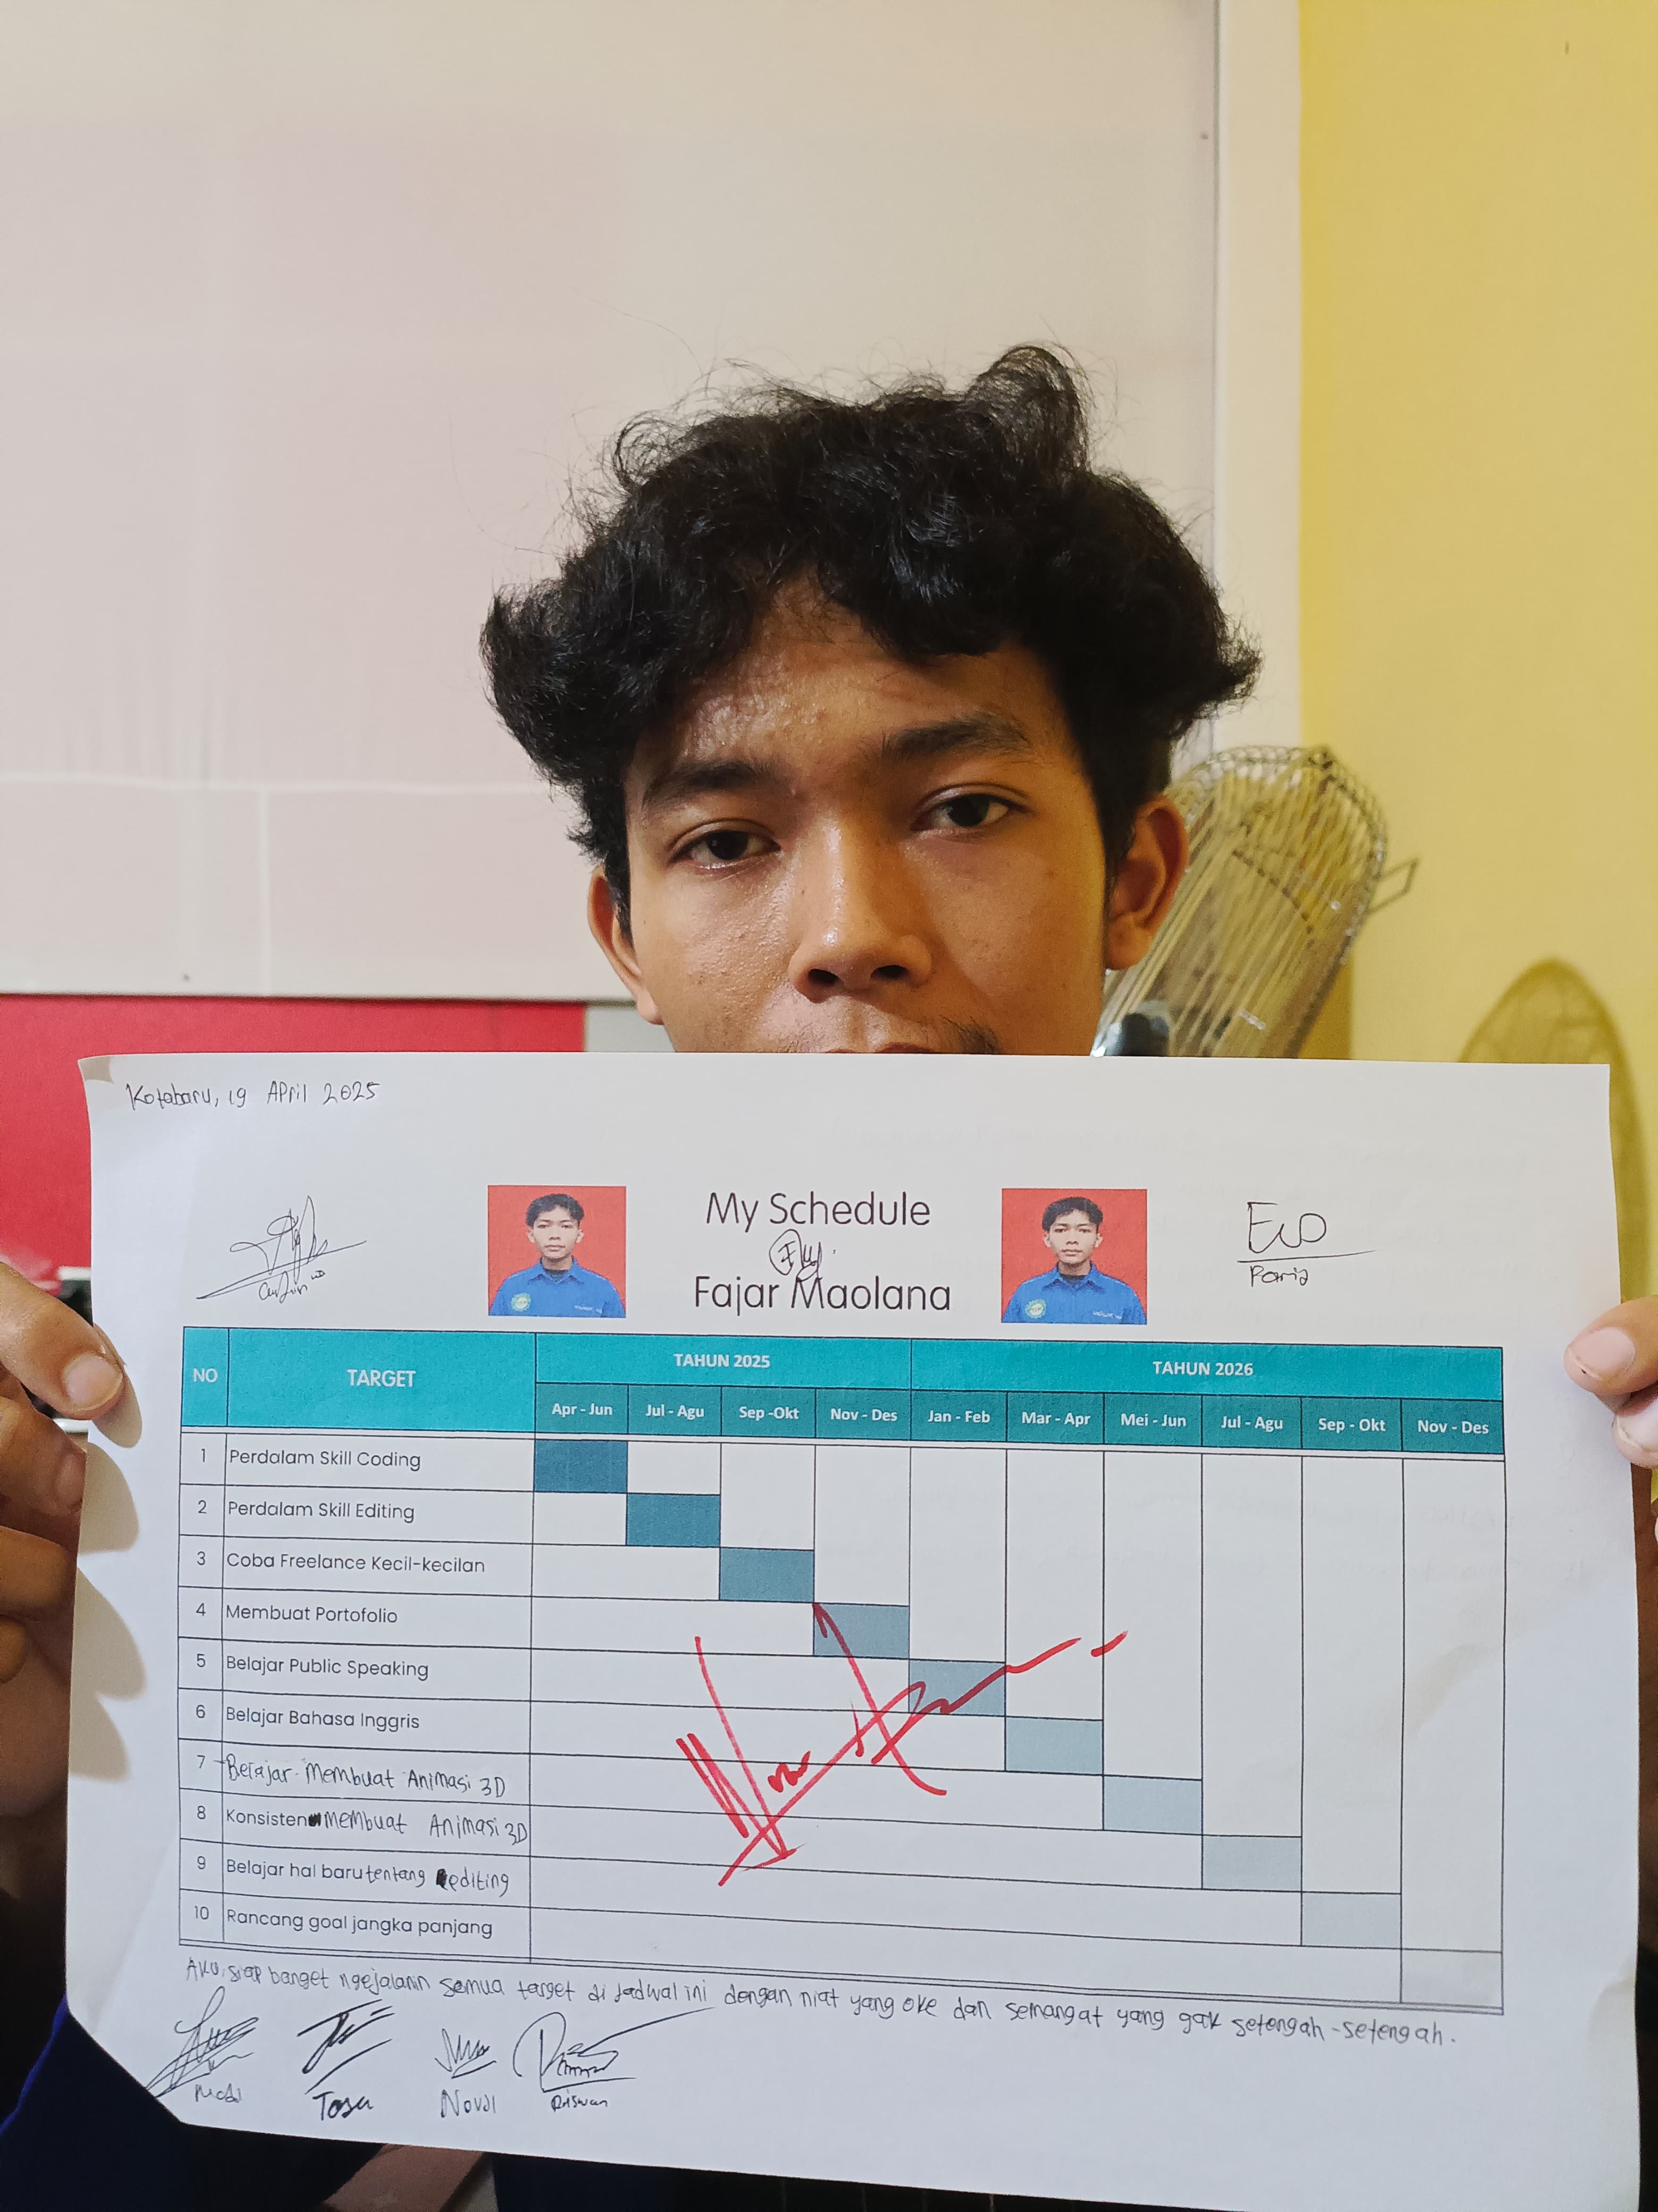 Kotabaru, 19 April 2025
My Schedule
Fajar Maolana
Eko
Paris
NO TARGET TAHUN 2025 TAHUN 2026
Apr - Jun Jul - Agu Sep -Okt Nov - Des Jan - Feb Mar - Apr Mei - Jun Jul - Agu Sep - Okt Nov - Des
1 Perdalam Skill Coding
2 Perdalam Skill Editing
3 Coba Freelance Kecil-kecilan
4 Membuat Portofolio
5 Belajar Public Speaking
6 Belajar Bahasa Inggris
7 Belajar Membuat Animasi 3D
8 Konsisten membuat Animasi 3D
9 Belajar hal baru tentang editing
10 Rancang goal jangka panjang
Aku siap banget ngejalanin semua target di Jadwal ini dengan niat yang oke dan semangat yang gak setengah-setengah.
Noval Riswan